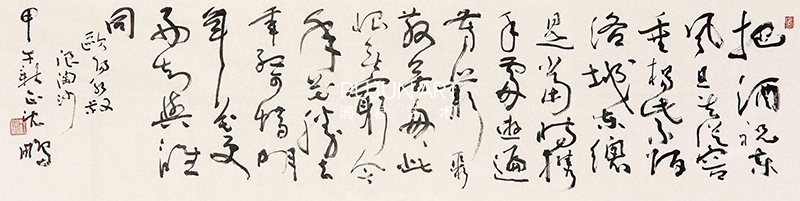 把酒祝東
風且共從容
垂楊紫陌
洛城東總
是當時攜
手處遊遍
芳叢聚
散苦匆匆此
恨無窮今
年花勝去
年紅可惜明
年花更
好知與誰
同
歐陽永叔
浪淘沙
甲午新正沈鵬寫